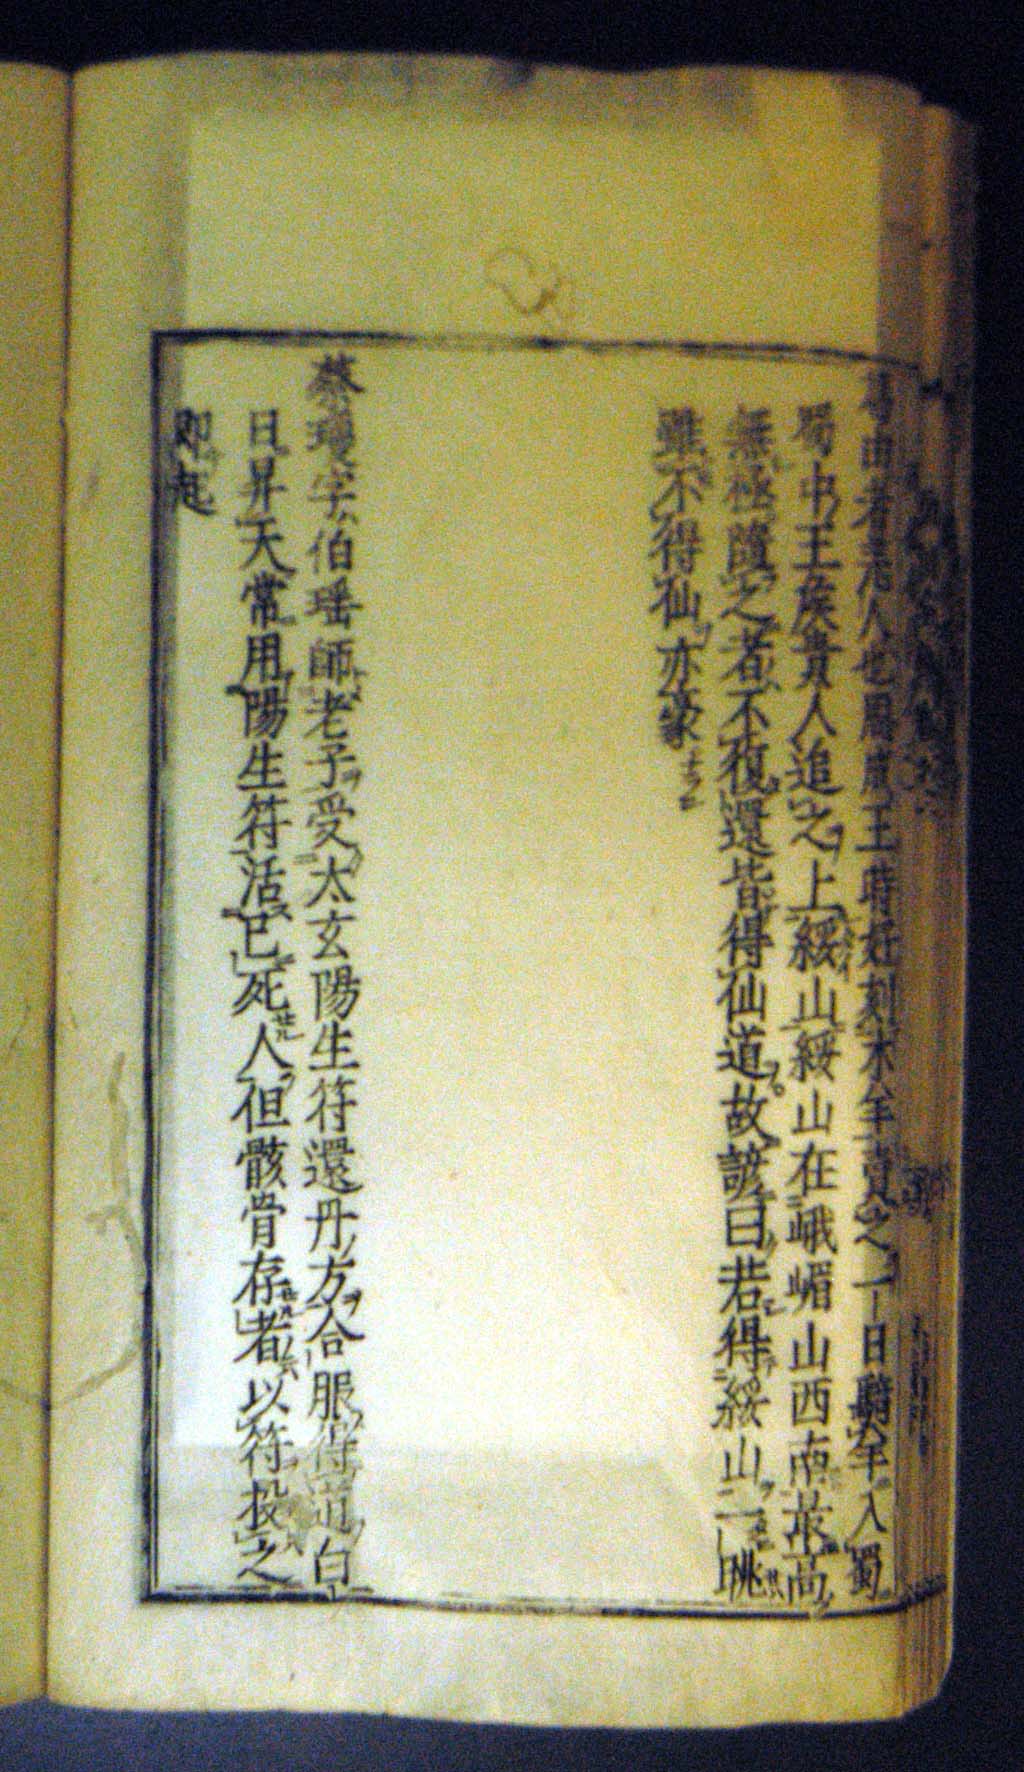 葛由者羌人也周成王時好刻木作羊賣之一日騎羊入蜀
蜀中王矦貴人追之上綏山綏山在峨嵋山西南最高
無極隨之者不復還皆得仙道故諺曰若得綏山一桃
雖不得仙亦豪
蔡瓊字伯瑶師老子受太玄陽生符還丹方合服得道白
日昇天常用陽生符活已死人但骸骨存者以符投之
即起